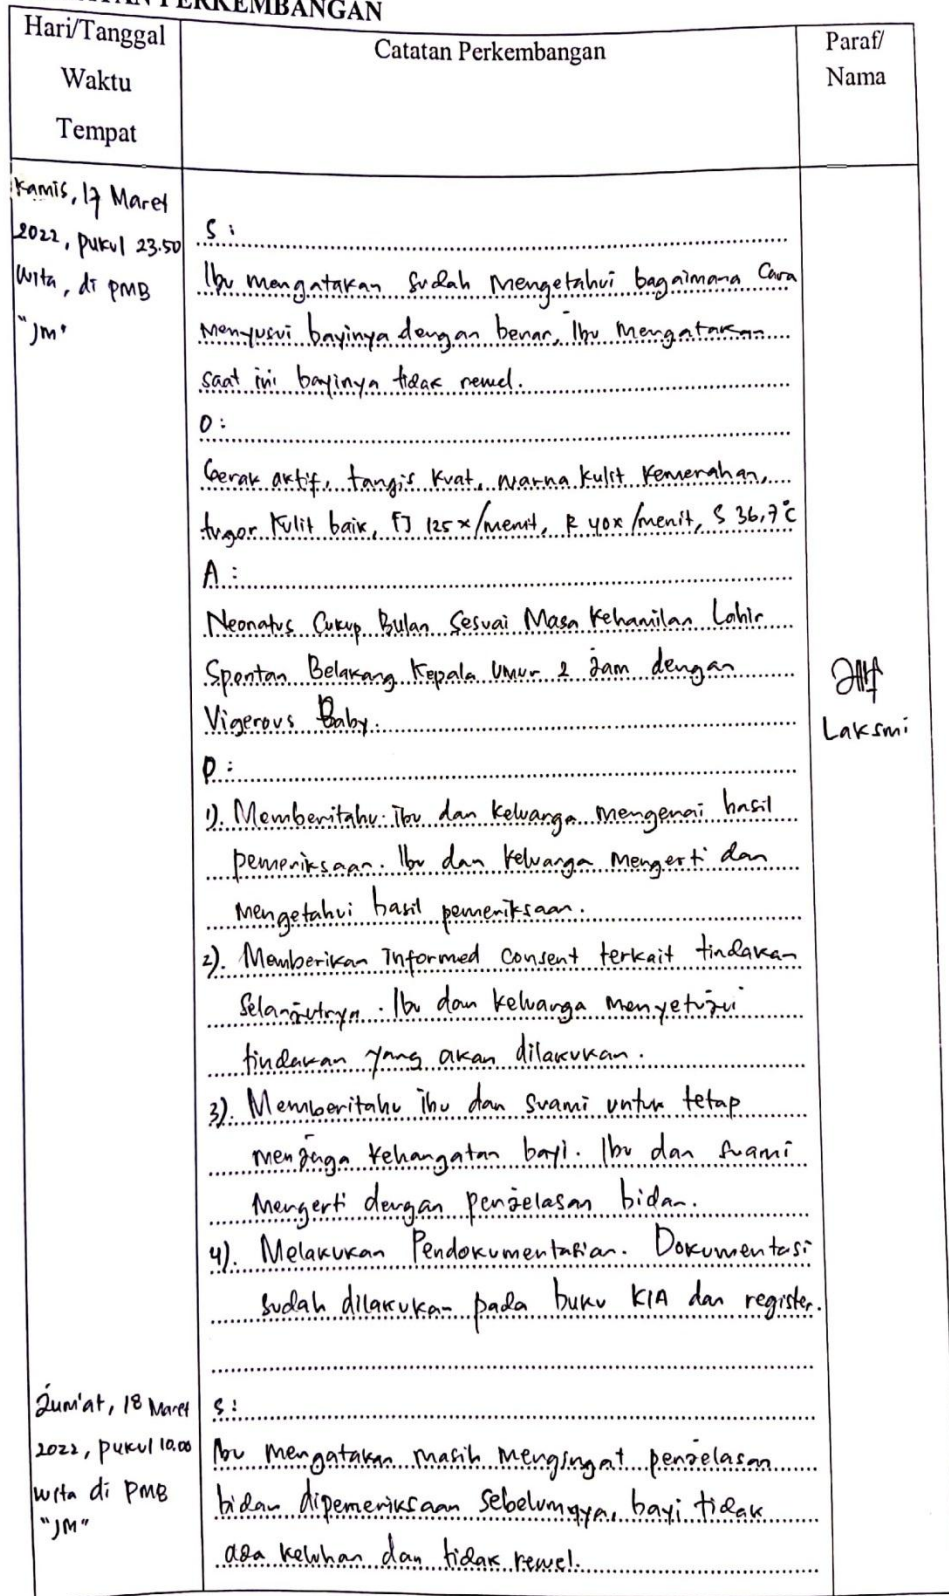 PERKEMBANGAN
Hari/Tanggal
Waktu
Tempat
Catatan Perkembangan
Paraf/
Nama
Kamis, 17 Maret
2022, pukul 23.50
Wita, di PMB
"JM"
S :
Ibu mengatakan sudah mengetahui bagaimana cara
menyusui bayinya dengan benar, Ibu mengatakan
saat ini bayinya tidak rewel.
O :
Gerak aktif, tangis kuat, warna kulit kemerahan,
tugor kulit baik, FJ 125 x/menit, R 40x/menit, S 36,7°C
A :
Neonatus Cukup Bulan Sesuai Masa Kehamilan Lahir
Spontan Belakang Kepala Umur 2 Jam dengan
Vigerous Baby.
P :
1). Memberitahu ibu dan keluarga mengenai hasil
pemeriksaan. Ibu dan keluarga mengerti dan
mengetahui hasil pemeriksaan.
2). Memberikan Informed Consent terkait tindakan
selanjutnya. Ibu dan keluarga menyetujui
tindakan yang akan dilakukan.
3). Memberitahu ibu dan suami untuk tetap
menjaga kehangatan bayi. Ibu dan suami
mengerti dengan penjelasan bidan.
4). Melakukan Pendokumentasian. Dokumentasi
sudah dilakukan pada buku KIA dan register.
Laksmi
Jum'at, 18 Maret
2022, pukul 10.00
wita di PMB
"JM"
S :
Ibu mengatakan masih mengingat penjelasan
bidan dipemeriksaan sebelumnya, bayi tidak
ada keluhan dan tidak rewel.